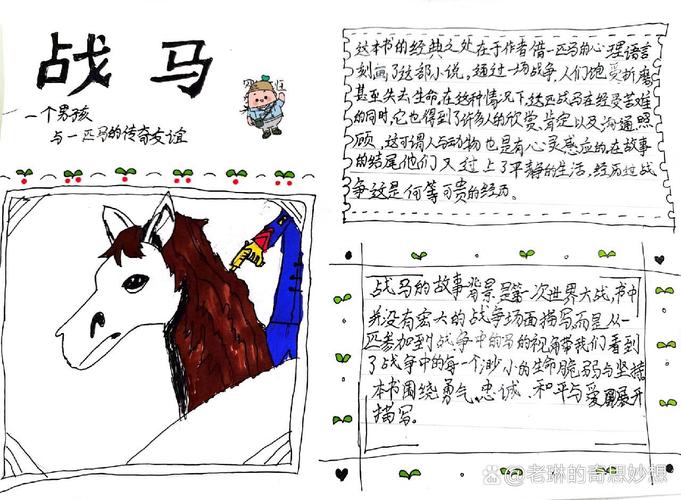 战马
一个男孩
与一匹马的传奇友谊
这本书的经典之处在于作者借一匹马的心理语言
刻画了这部小说，通过一场战争，人们饱受折磨
甚至失去生命，在这种情况下，这匹战马在经受苦难
的同时，它也得到了许多人的欣赏、肯定以及沟通照
顾，这可谓人与动物也是有心灵感应的，在故事
的结尾他们又过上了平静的生活，经历过战
争这是何等可贵的经历。
战马的故事背景是第一次世界大战，书中
并没有宏大的战争场面描写而是从一
匹参加到战争中的马的视角带我们看到
了战争中的每一个渺小的生命脆弱与坚韧
本书围绕勇气、忠诚、和平与爱展开
描写。
老琳的奇思妙想